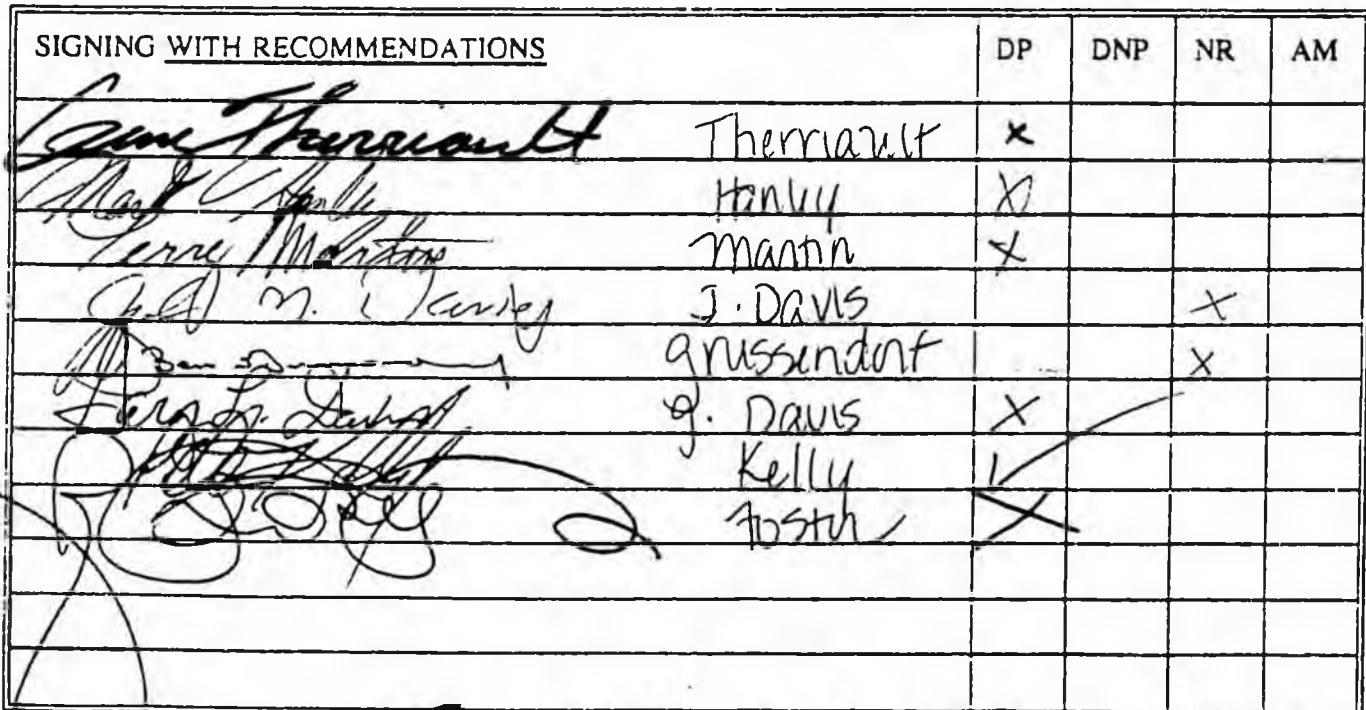 SIGNING WITH RECOMMENDATIONS DP DNP NR AM
Gene Therriault Therriault x
Mark Hanley Hanley X
Terry Martin Martin X
J. Davis X
Ben Grussendorf X
G. Davis X
Kelly
Foster X